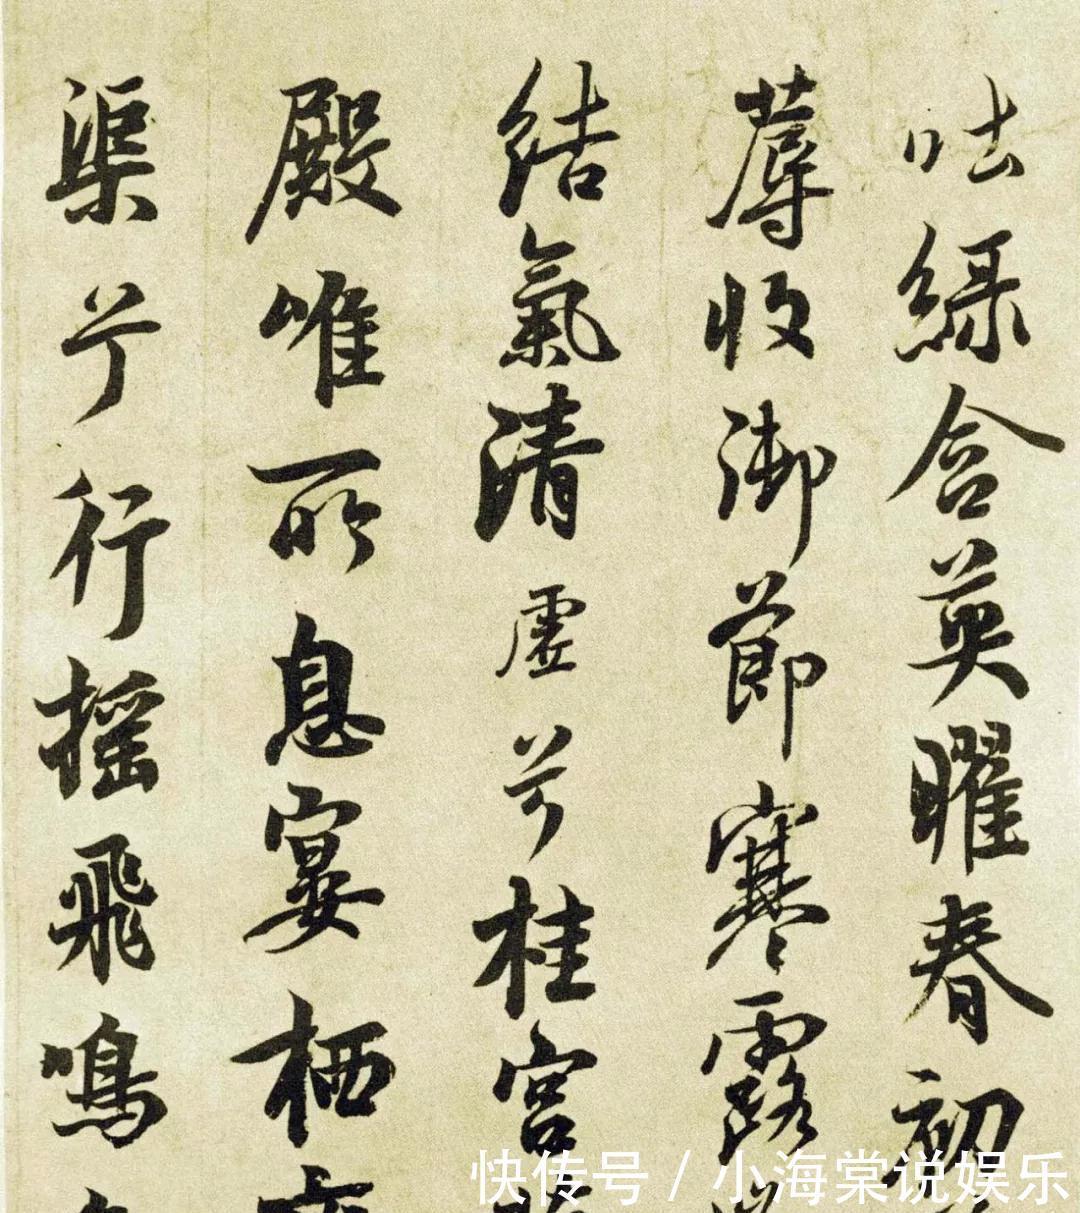 吐綠含英曜春初
蓐收御節寒露
結氣清虛兮桂宮
殿唯所息宴栖
渠兮行摇飛鳴
快传号 / 小海棠说娱乐